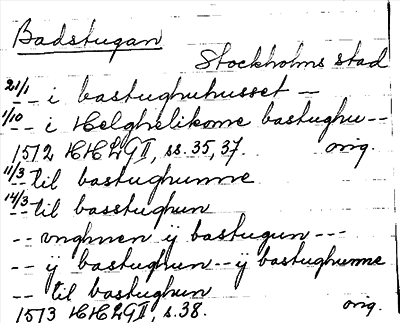 Badstugan
Stockholms stad
21/1 -- i bastughuhusset --
1/10 -- i Helghelikome bastughu--
1512 HHLG II, ss. 35, 37. orig.
11/3 -- til bastughunne
14/3 -- til basstughun
-- vnghnen ij bastugun ---
-- ij bastughun -- ij bastughunne
-- til bastughun
1513 HHLG II, s. 38. orig.